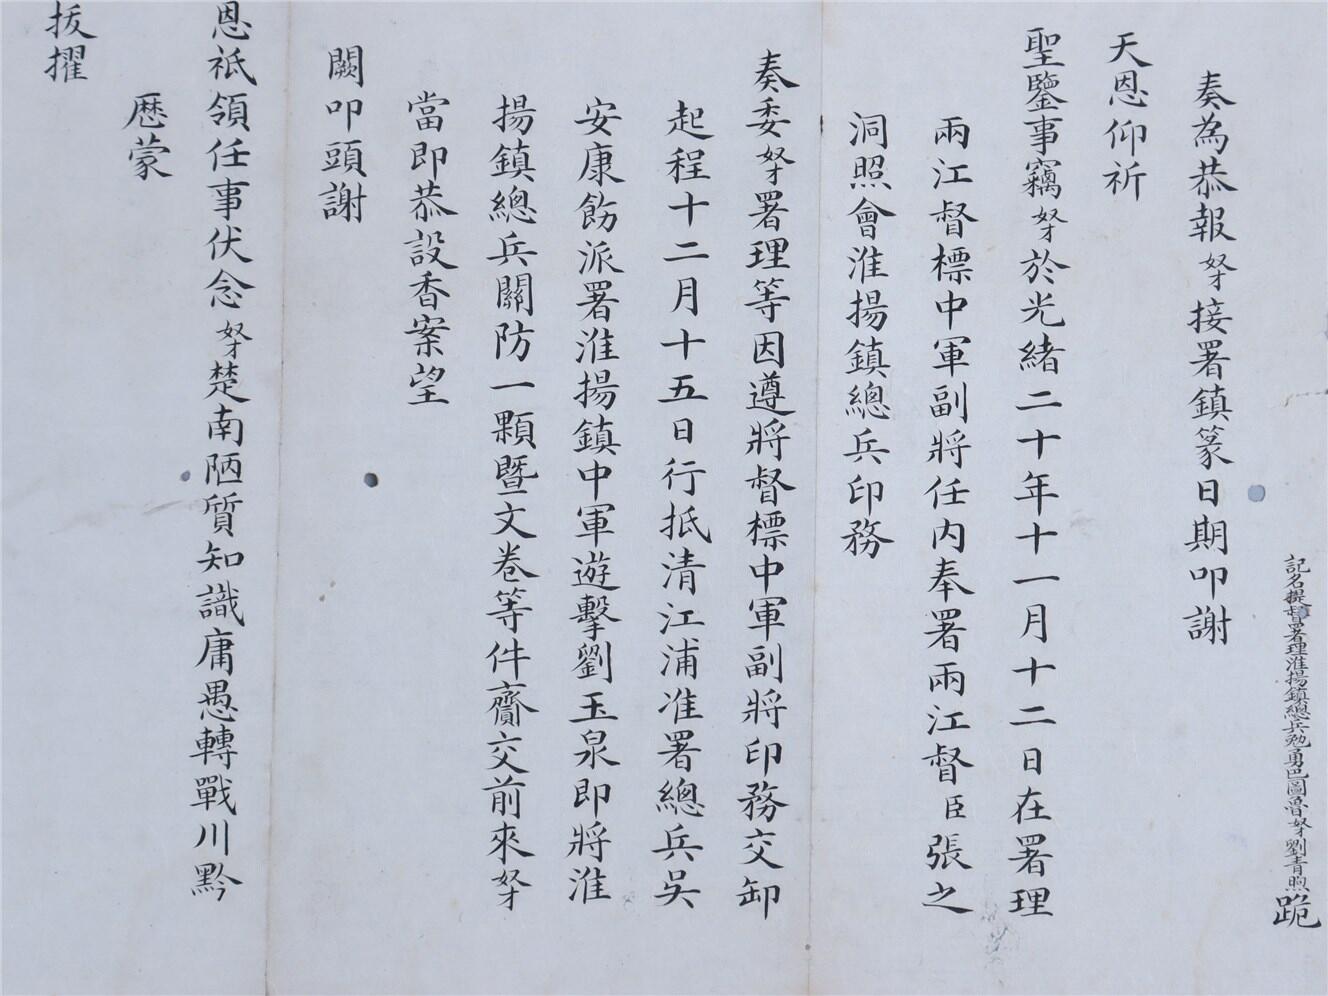 記名提督署理淮揚鎮總兵勉勇巴圖魯奴才劉青煦跪
奏為恭報奴才接署鎮篆日期叩謝
天恩仰祈
聖鑒事竊奴才於光緒二十年十一月十二日在署理
兩江督標中軍副將任內奉署兩江督臣張之
洞照會淮揚鎮總兵印務
奏委奴才署理等因遵將督標中軍副將印務交卸
起程十二月十五日行抵清江浦准署總兵吳
安康飭派署淮揚鎮中軍遊擊劉玉泉即將淮
揚鎮總兵關防一顆暨文卷等件齎交前來奴才
當即恭設香案望
闕叩頭謝
恩祇領任事伏念奴才楚南陋質知識庸愚轉戰川黔
歷蒙
拔擢